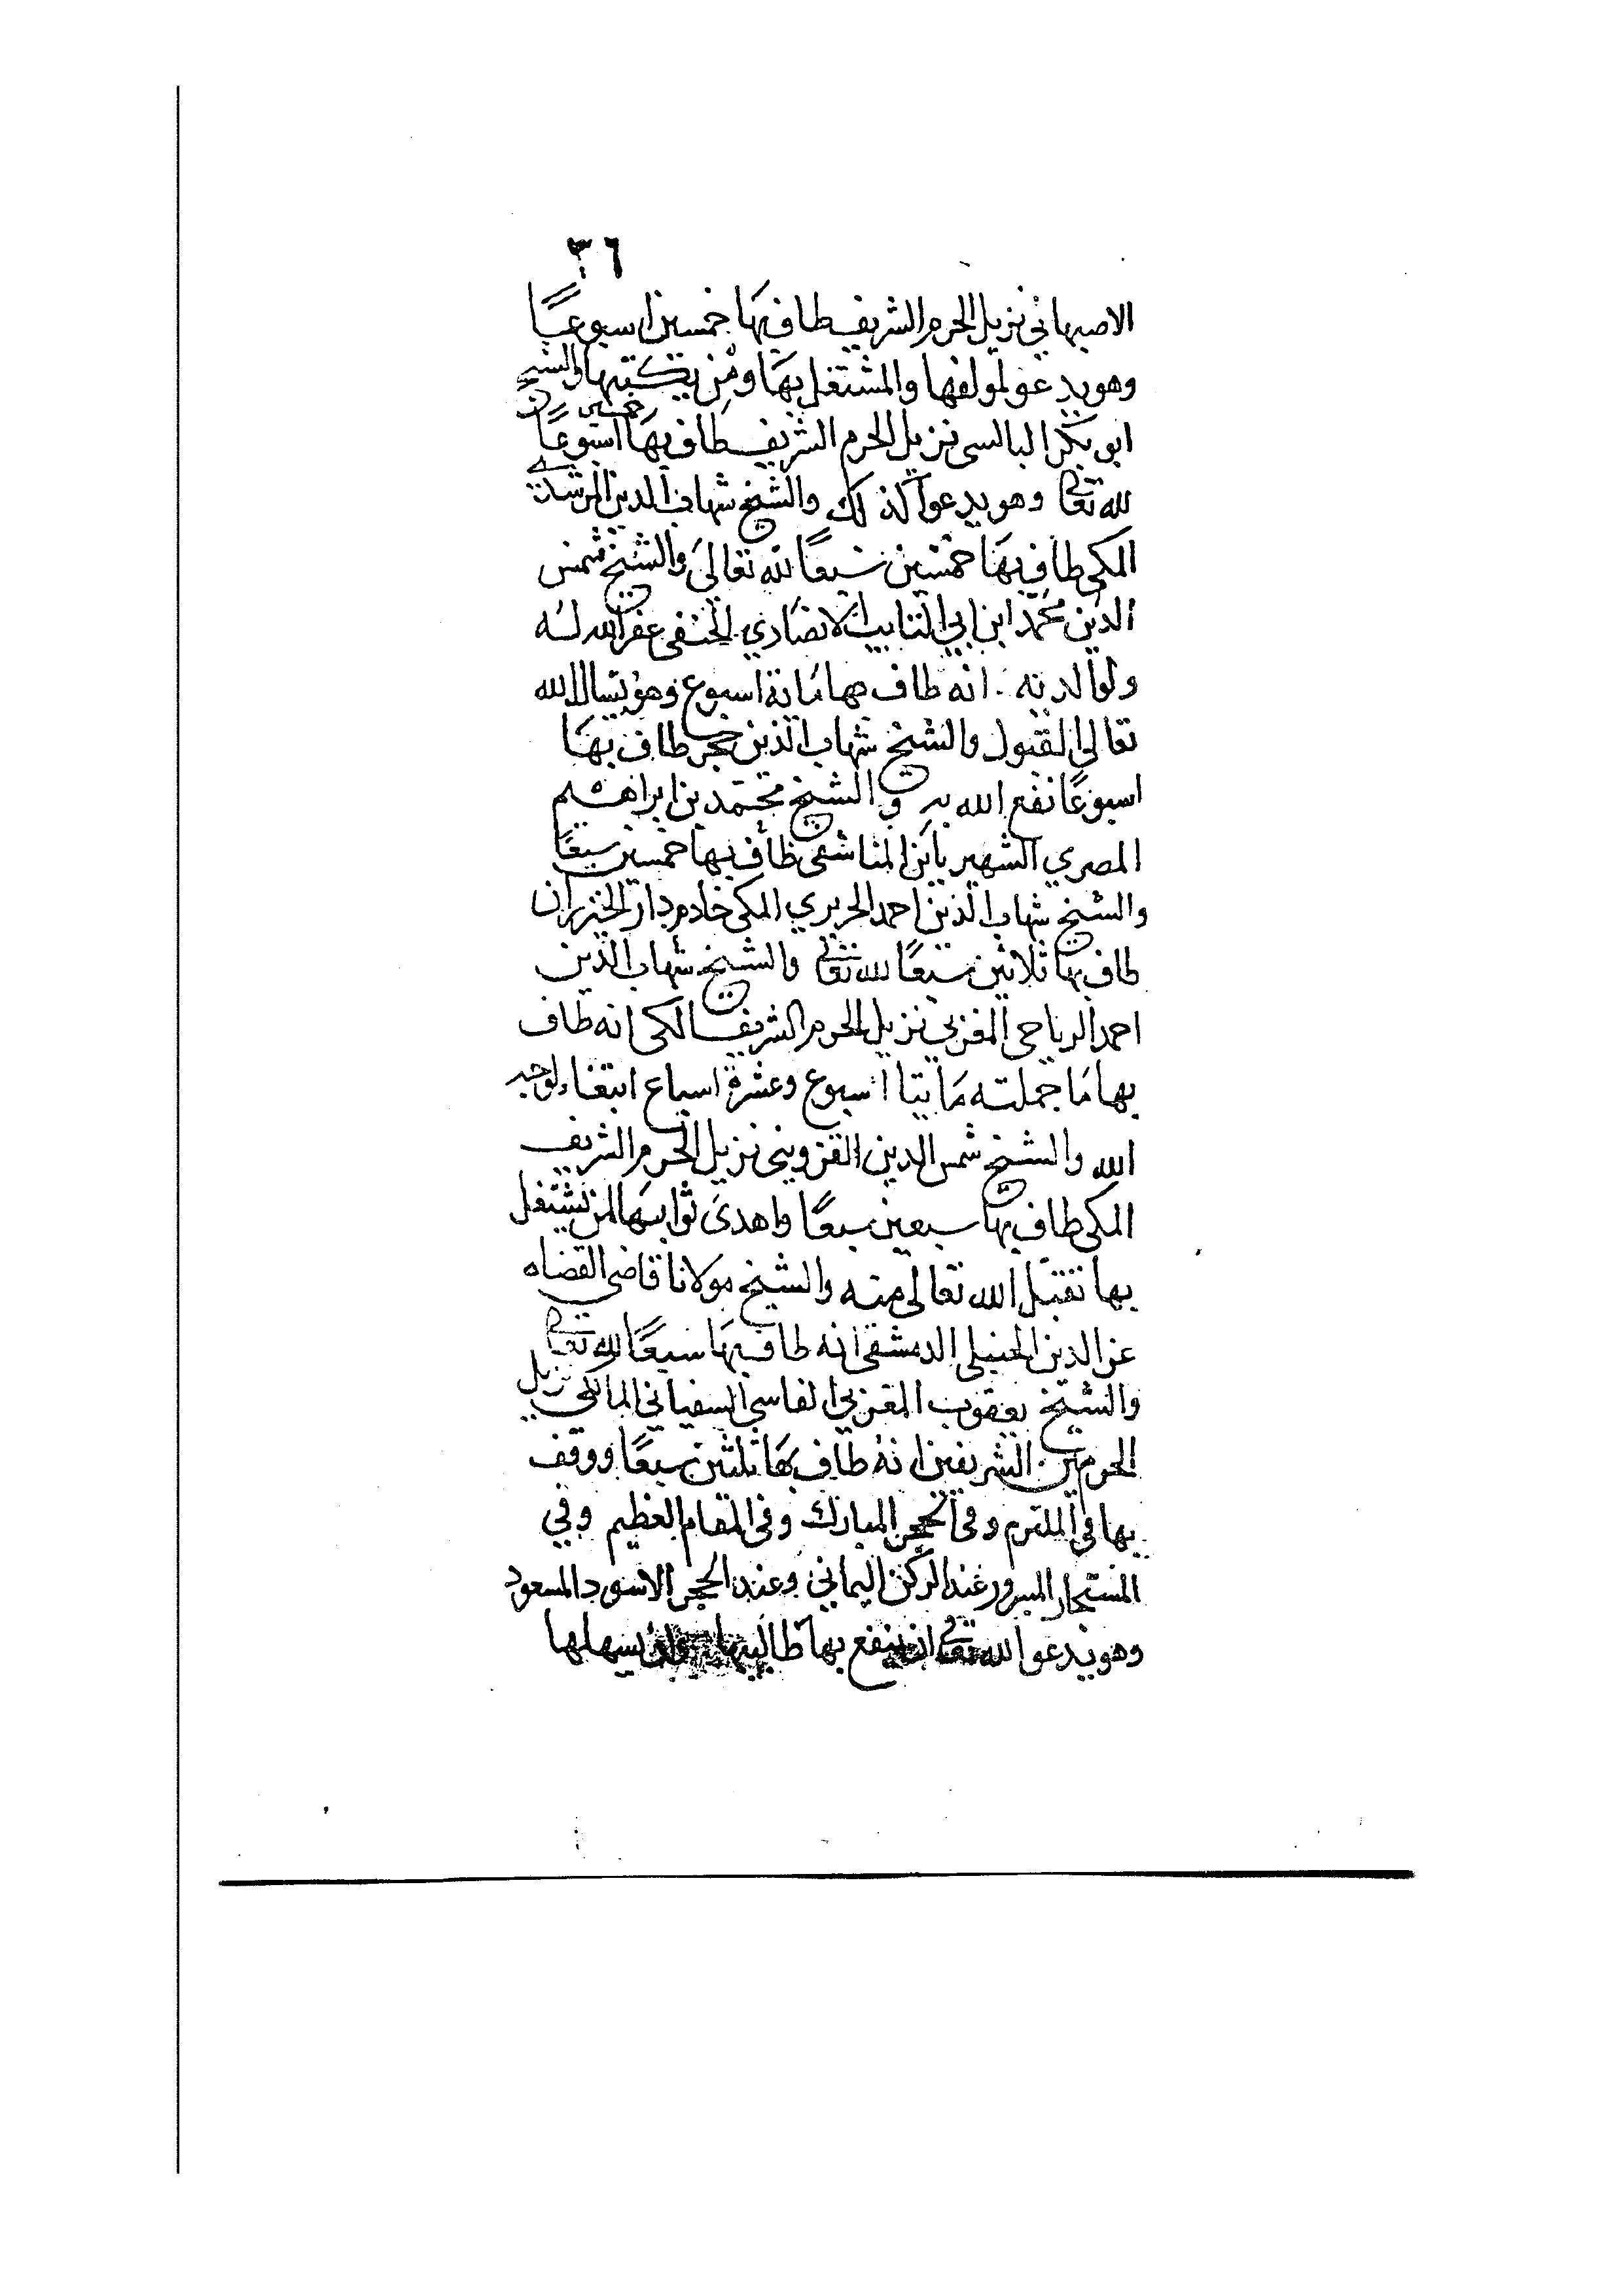 ٣٦
الاصبهاني نزيل الحرم الشريف طاف بها خمسين اسبوعًا
وهو يدعو لمولفها والمشتغل بها ومن يكتبها والشيخ
ابو بكر البالسي نزيل الحرم الشريف طاف بها خمسين اسبوعًا
لله تعالى وهو يدعوا كذلك والشيخ شهاب الدين المرشدي
المكي طاف بها خمسين سبعًا لله تعالى والشيخ شمس
الدين محمد ابن ابي الانصاري الحنفي غفر الله له
ولوالديه انه طاف بها ماية اسبوع وهو يسال الله
تعالى القبول والشيخ شهاب الدين حجي طاف بها
اسبوعًا نفع الله به والشيخ محمد بن ابراهيم
المصري الشهير بابن المناشفي طاف بها خمسين سبعًا
والشيخ شهاب الدين احمد الحريري المكي خادم دار الخيزران
طاف بها ثلاثين سبعًا لله تعالى والشيخ شهاب الدين
احمد الرياحي المغربي نزيل الحرم الشريف المكي انه طاف
بها ما جملته مايتا اسبوع وعشرة اسباع ابتغاء لوجه
الله والشيخ شمس الدين القزويني نزيل الحرم الشريف
المكي طاف بها سبعين سبعًا واهدى ثوابها لمن يشتغل
بها تقبل الله تعالى منه والشيخ مولانا قاضي القضاه
عز الدين الحنبلي الدمشقي انه طاف بها سبعًا لله تعالى
والشيخ يعقوب المغربي الفاسي السفياني المالكي نزيل
الحرمين الشريفين انه طاف بها ثلثين سبعًا ووقف
بها في الملتزم وفي الحجر المبارك وفي المقام العظيم وفي
المستجار المبرور عند الركن اليماني وعند الحجر الاسود المسعود
وهو يدعوا لله تعالى ان ينفع بها طالبيها وان يسهلها